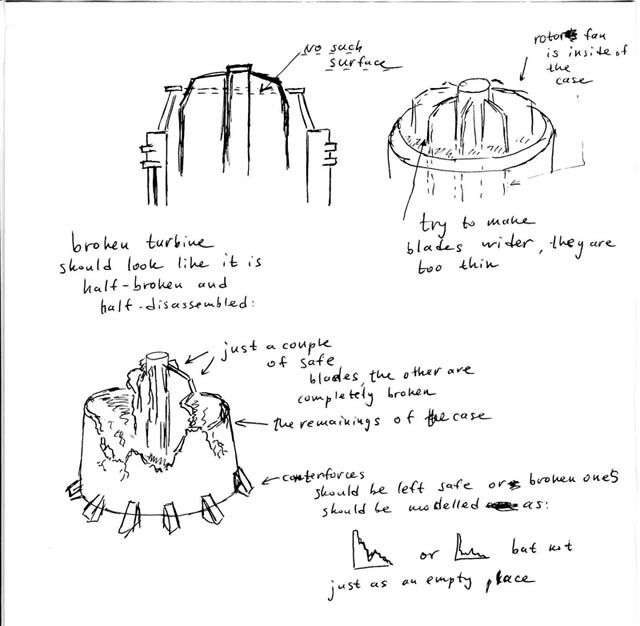 No such
surface
rotor fan
is inside of
the
case
try to make
blades wider, they are
too thin
broken turbine
should look like it is
half-broken and
half-disassembled:
just a couple
of safe
blades, the other are
completely broken
the remainings of the case
conterforces
should be left safe or broken ones
should be modelled as:
or but not
just as an empty place